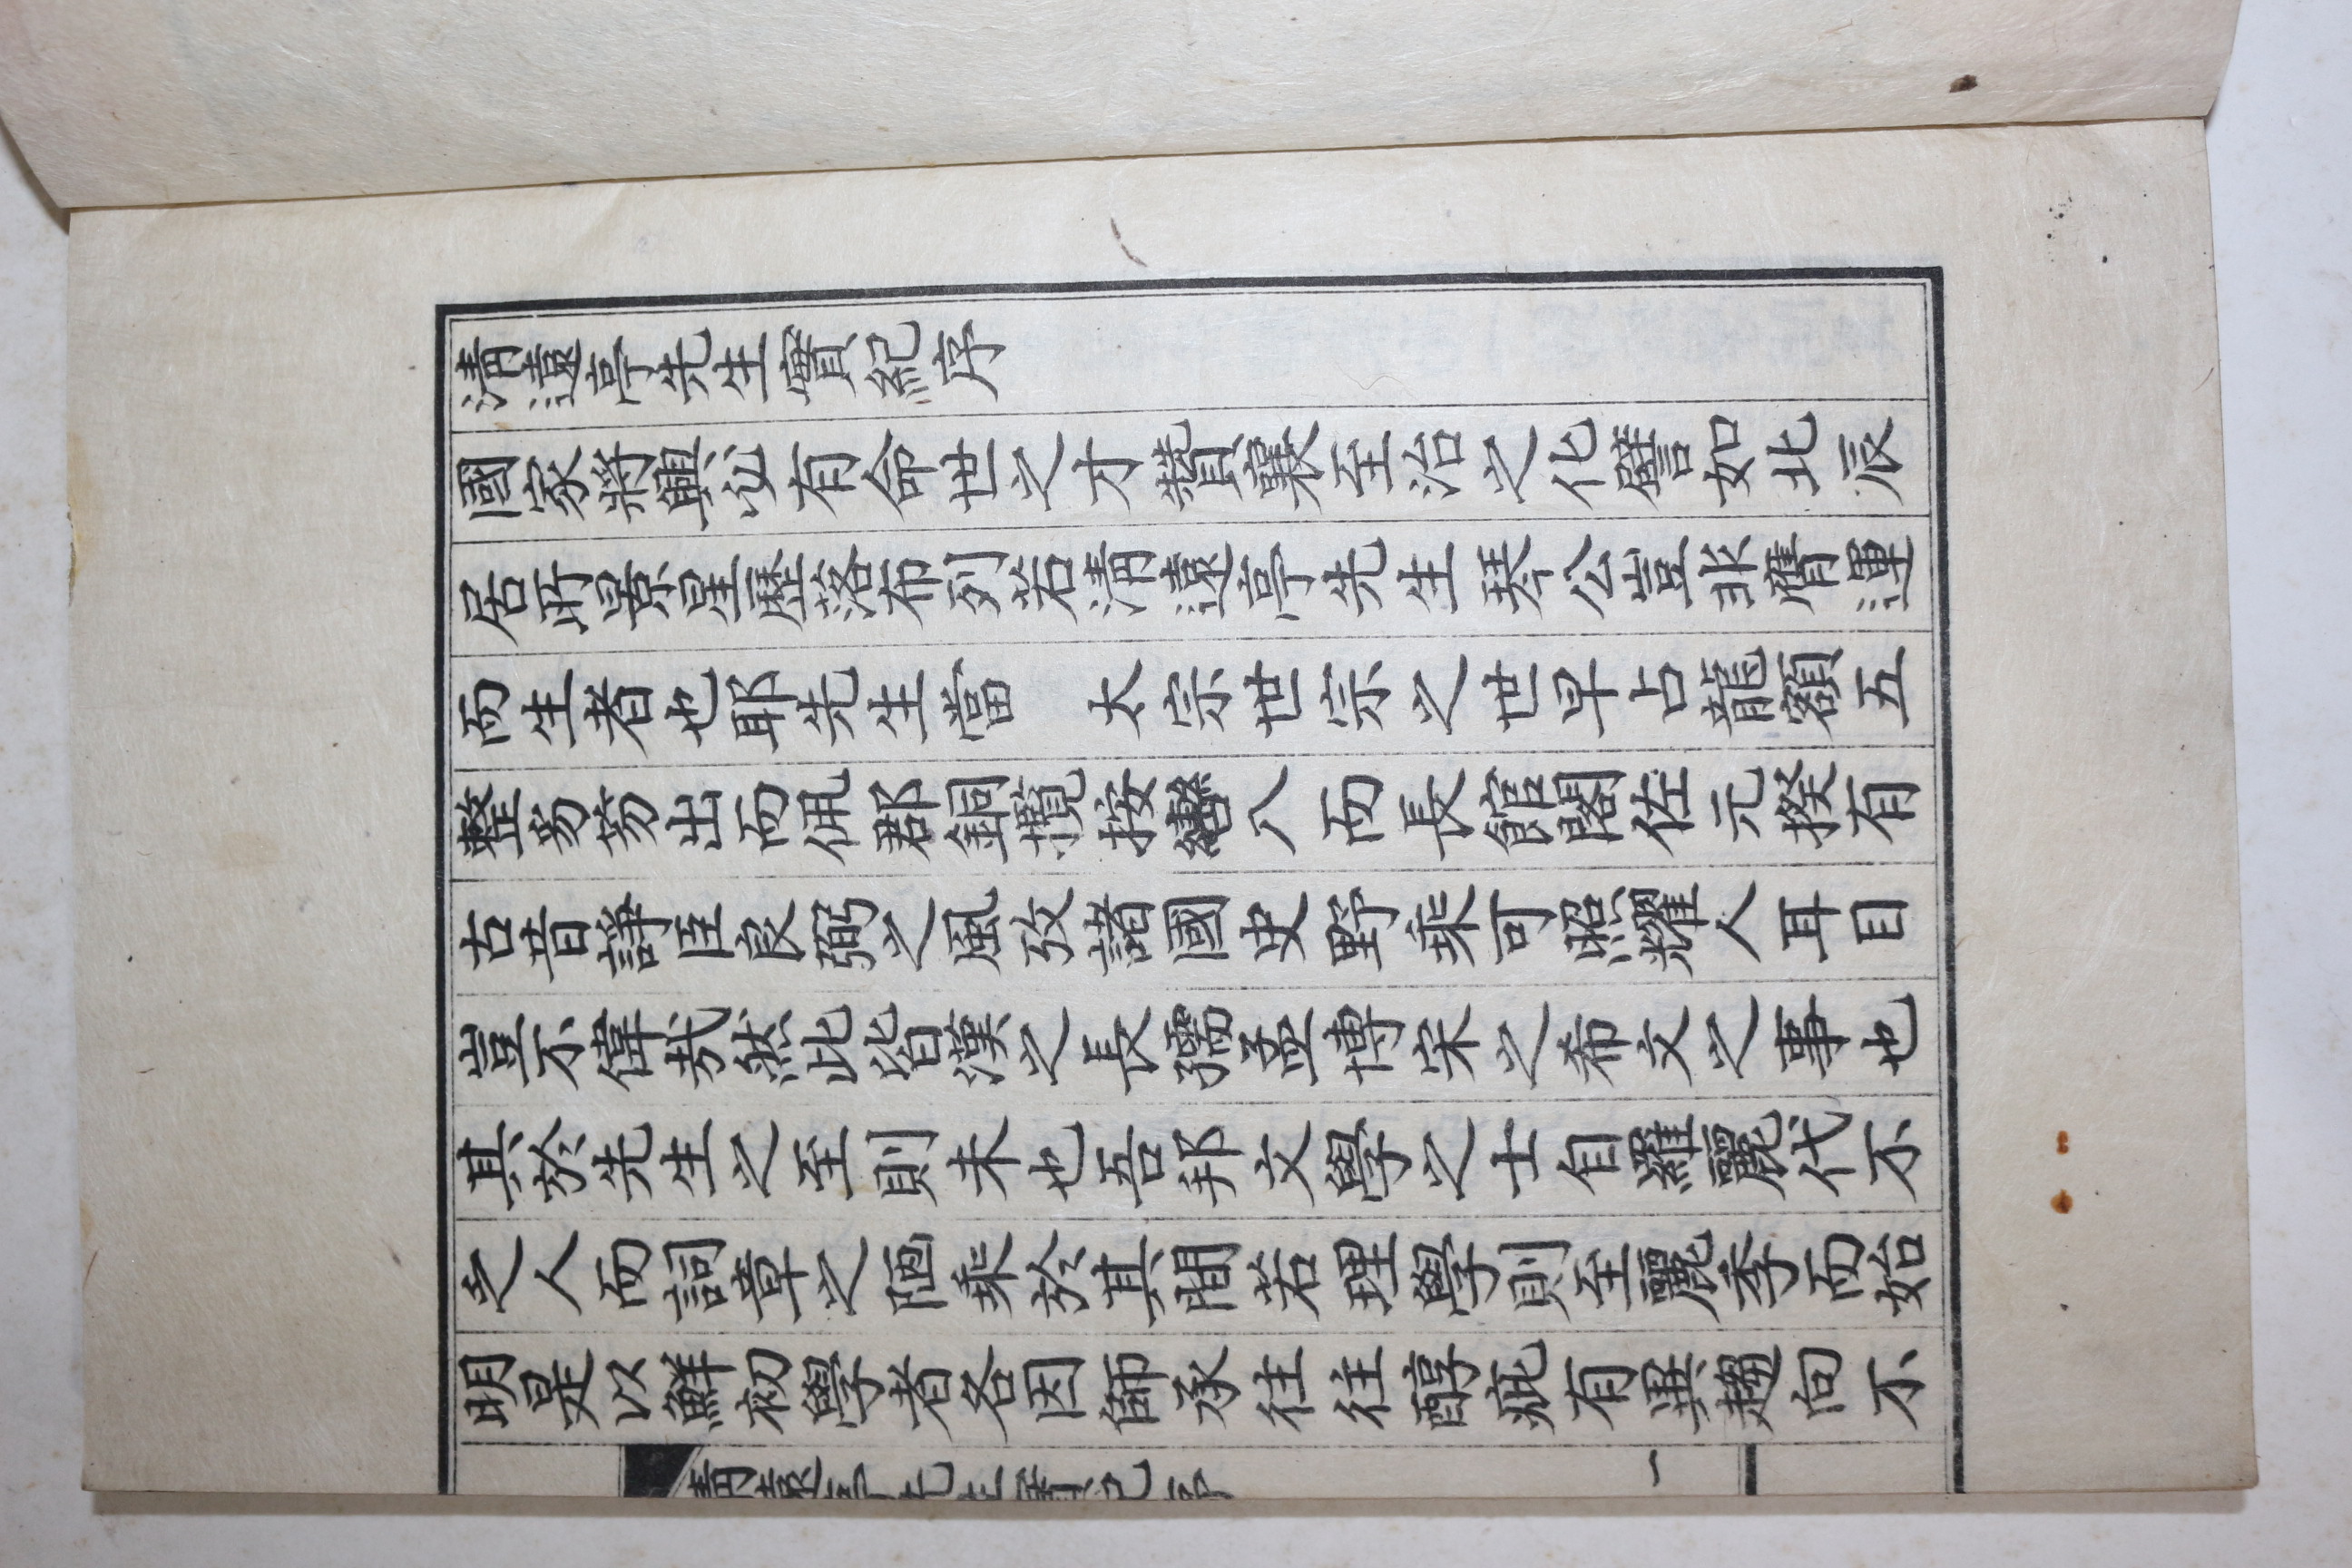 淸遠亭先生實紀序
國家將興必有命世之才贊襄至治之化譬如北辰
居所景星歷落布列若淸遠亭先生琴公豈非膺運
而生者也耶先生當　太宗世宗之世早占龍額五
整豸笏出而佩郡銅攬按轡八而長館閣佐元揆有
古昔諍臣良弼之風攷諸國史野乘可照耀人耳目
豈不偉哉然此皆漢之長孺孟博宋之希文之事也
其於先生之至則未也吾邦文學之士自羅麗代不
乏人而詞章之陋乘於其間若理學則至麗季而始
明是以鮮初學者各因師承往往醇疵有異趨向不
淸遠亭先生實紀序
一